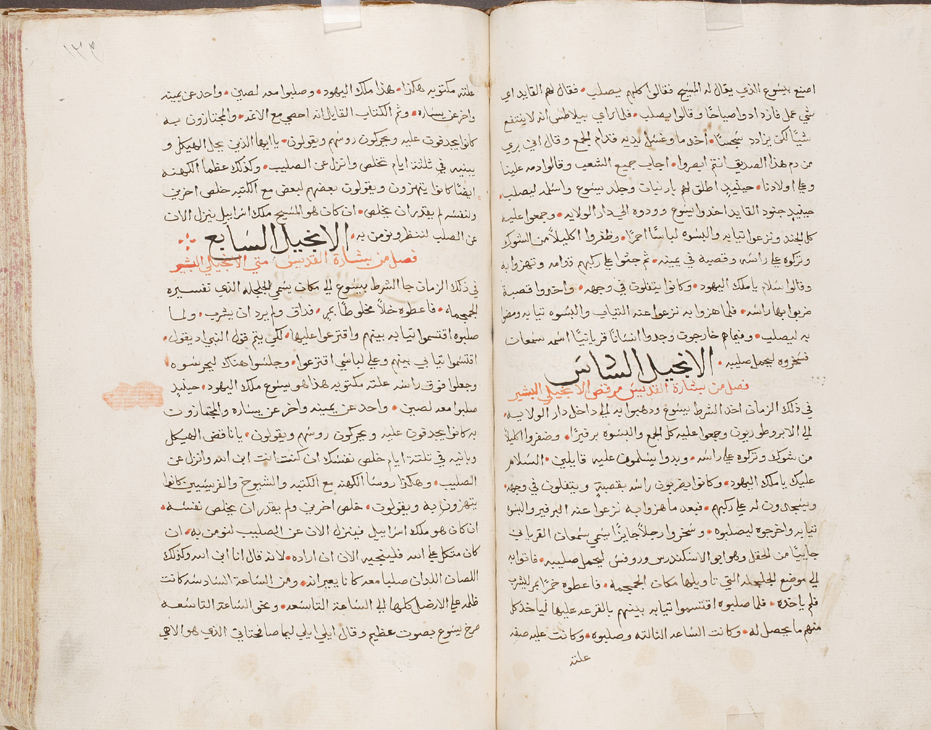 اصنع بيسوع الذي يقال له المسيح فقالوا كلهم يصلب • فقال لهم القايد اي
شي عمل فازدادوا صياحًا وقالوا يصلب • فلما راي بيلاطس انه لا ينتفع
شيًّا لكن يزداد سجسًا • اخد ما وغسل يديه قدام الجمع وقال اني بري
من دم هذا الصديق انتم ابصروا • اجاب جميع الشعب وقالوا دمه علينا
وعلي اولادنا • حينيد اطلق لهم بارنبان وجلد يسوع واسلمه ليصلب •
حينيد جنود القايد اخدوا يسوع وودوه الي دار الولايه • وجمعوا عليه
كل الجند ونزعوا تيابه والبسوه لباسًا احمرًا • وظفروا اكليلاً من الشوك
وتركوه علي راسه وقصبة في يمينه • تم جثوا علي ركبهم قدامه وتهزوا به
وقالوا سلام يا ملك اليهود • وكانوا يتفلون في وجهه • واخدوا قصبة
ضربوا بها راسه • فلما هزوا به نزعوا عنه التياب والبسوه تيابه ومضوا
به ليصلب • وفيما هم خارجون وجدوا انسانًا قريانيًّا اسمه سمعان
فسخروه ليحمل صليبه •
الانجيل السادس
فصل من بشارة القديس مرقص الانجيلي البشير
في ذلك الزمان اخد الشرط يسوع ودهبوا به الي داخل دار الولايه
الي الابروطوريون وجمعوا عليه كل الجمع والبسوه برفيرًا • وضفروا اكليلاً
من شوك وتركوه علي راسه • وبدوا يسلمون عليه قايلين • السلام
عليك يا ملك اليهود • وكانوا يضربون راسه بقصبة ويتفلون في وجهه
ويسجدون له علي ركبهم • فبعد ما هزوا به نزعوا عنه البرفير والبسوه
تيابه واخرجوه ليصلبوه • وسخروا رجلاً جايزًا يسمي سمعان القرياني
جاييًا من الحقل وهو ابو الاسكندرس وروفس ليحمل صليبه • فاتوا به
الي موضع الجلجله التي تاويلها مكان الجمجمه • فاعطوه خمرًا بمر ليشرب
فلم ياخده • فلما صلبوه اقتسموا تيابه بينهم بالقرعه عليها فياخد كل
منهم ما يحصل له • وكانت الساعه الثالته وصلبوه • وكانت عليه صفه
علته
١٣٣
علته مكتوبه هكذا • هذا ملك اليهود • وصلبوا معه لصين • واحد عن يمينه
واخر عن يساره • وتم الكتاب القايل انه احصي مع الاتمه • والمجتازون به
كانوا يجدفون عليه ويحركون روسهم ويقولون • يا ايها الذي يحل الهيكل و
يبنيه في ثلثة ايام تخلص وانزل عن الصليب • وكذلك عظما الكهنه
ايضًا كانوا يتهزون ويقولون بعضهم لبعض مع الكتبه خلص اخرين
ولنفسه لم يقدر ان يخلص • ان كان هو المسيح ملك اسراييل ينزل الان
عن الصليب لننظر ونومن به •
الانجيل السابع
فصل من بشارة القديس متي الانجيلي البشير
في ذلك الزمان جا الشرط بيسوع الي مكان يسمي الجلجله الذي تفسيره
الجمجمه • فاعطوه خلاً مخلوطًا بمر • فداق ولم يرد ان يشرب • ولما
صلبوه اقتسموا تيابه بينهم واقترعوا عليها • لكي يتم قول النبي اد يقول •
اقتسموا تيابي بينهم وعلي لباسي اقترعوا • وجلسوا هناك ليحرسوه •
وجعلوا فوق راسه علته مكتوبه هذا هو يسوع ملك اليهود • حينيد
صلبوا معه لصين • واحد عن يمينه واخر عن يساره والمجتازون
به كانوا يجدفون عليه ويحركون روسهم ويقولون • يا ناقض الهيكل
وبانيه في تلتة ايام خلص نفسك ان كنت انت ابن الله وانزل عن
الصليب • وهكذا روسا الكهنه مع الكتبه والشيوخ والفريسيين كانوا
يتهزون به ويقولون • خلص اخرين ولم يقدر ان يخلص نفسه •
ان كان هو ملك اسراييل فينزل الان عن الصليب لنومن به • ان
كان متكل علي الله فلينجيه الان ان اراده • لانه قال انا ابن الله وكذلك
اللصان اللدان صلبا معه كانا يعيرانه • ومن الساعة السادسه كانت
ظلمه علي الارض كلها الي الساعة التاسعه • ونحو الساعة التاسعه
صرخ يسوع بصوت عظيم وقال ايلي ايلي ليما صافختاني الذي هو الاهي